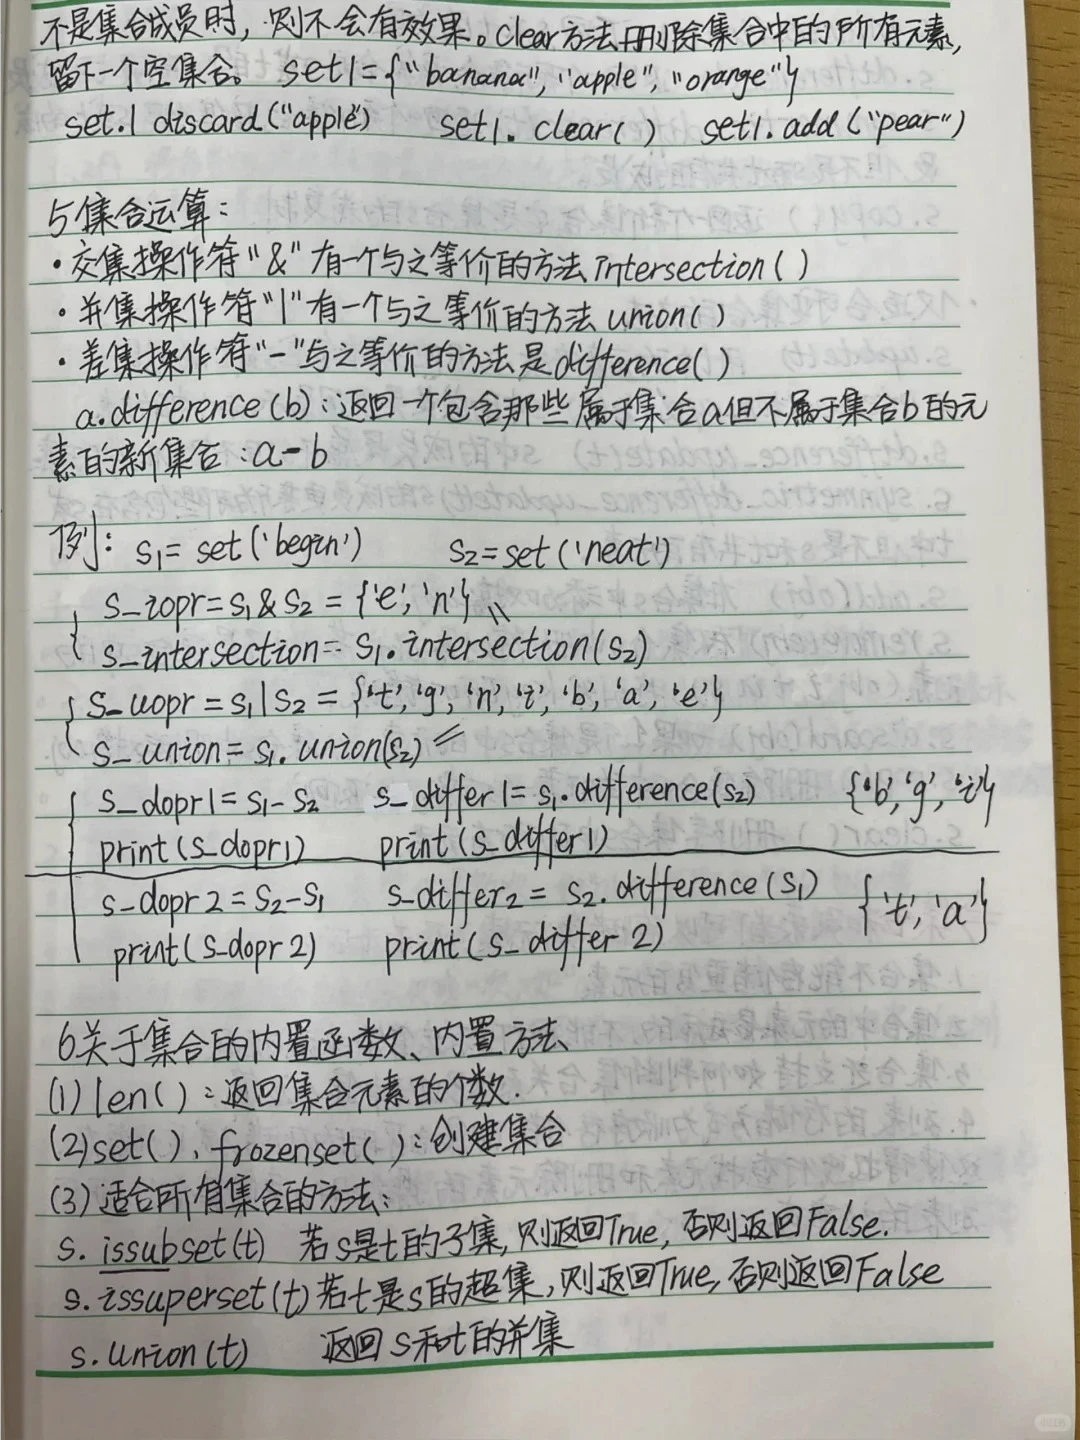 不是集合成员时，则不会有效果。clear方法删除集合中的所有元素，
留下一个空集合。 set1={"banana","apple","orange"}
set.1 discard("apple") set1.clear() set1.add("pear")
5集合运算：
·交集操作符"&"有一个与之等价的方法intersection()
·并集操作符"|"有一个与之等价的方法union()
·差集操作符"-"与之等价的方法是difference()
a.difference(b):返回一个包含那些属于集合a但不属于集合b的元
素的新集合：a-b
例：s1=set('begin') s2=set('neat')
s_iopr=s1&s2={'e','n'}
s_intersection=s1.intersection(s2)
s_uopr=s1|s2={'t','g','n','i','b','a','e'}
s_union=s1.union(s2)
s_dopr1=s1-s2 s_differ1=s1.difference(s2) {'b','g','i'}
print(s_dopr1) print(s_differ1)
s_dopr2=s2-s1 s_differ2=s2.difference(s1) {'t','a'}
print(s_dopr2) print(s_differ2)
6关于集合的内置函数、内置方法
(1)len()：返回集合元素的个数.
(2)set()、frozenset()：创建集合
(3)适合所有集合的方法：
s.issubset(t) 若s是t的子集,则返回True,否则返回False.
s.issuperset(t)若t是s的超集,则返回True,否则返回False
s.union(t) 返回s和t的并集
小红书